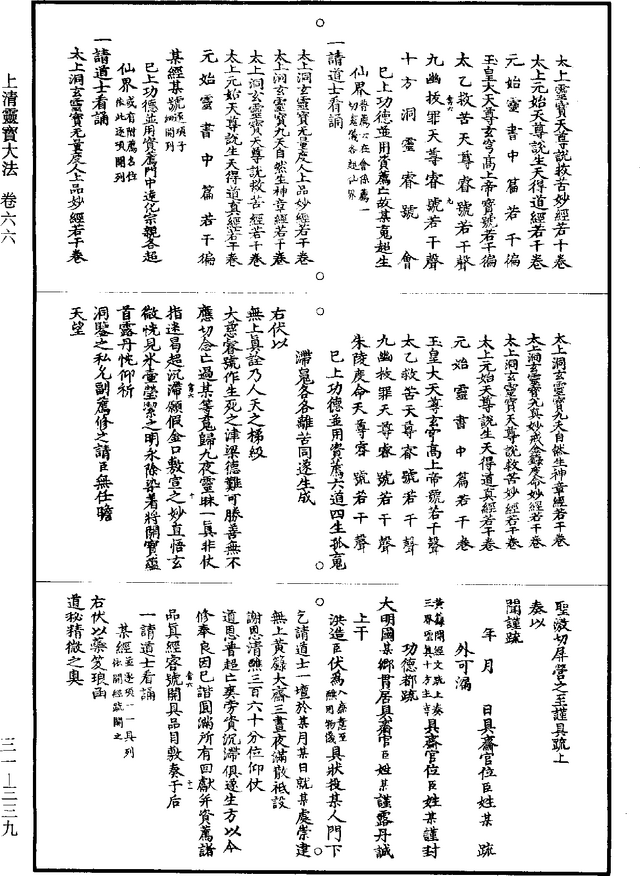 太上靈寶天尊說救苦妙經若干卷
太上元始天尊說生天得道經若干卷
元始靈書中篇若干徧
玉皇大天尊玄穹高上帝寶號若干徧
太乙救苦天尊睿號若干聲
九幽拔罪天尊睿號若干聲
十方洞靈睿號會
已上功德並用資薦亡故某䰟超生
仙界
一請道士看誦
太上洞玄靈寶无量度人上品妙經若干卷
太上洞玄靈寶九天自然生神章經若干卷
太上洞玄靈寶天尊說救苦經若干卷
太上元始天尊說生天得道真經若干卷
元始靈書中篇若干徧
某經某號逐項子細開列
已上功德並用資薦門中遠化宗親各超
仙界或有附薦名位依此逐項開列
一請道士看誦
太上洞玄靈寶无量度人上品妙經若干卷
太上洞玄靈寶九天自然生神章經若干卷
太上洞玄靈寶九真妙戒金籙度命妙經若干卷
太上洞玄靈寶天尊說救苦妙經若干卷
太上元始天尊說生天得道真經若干卷
元始靈書中篇若干卷
玉皇大天尊玄穹高上帝號若干聲
太乙救苦天尊睿號若干聲
九幽拔罪天尊睿號若干聲
朱陵度命天尊睿號若干聲
已上功德並用資薦六道四生孤䰟
滯鬼各各離苦同遂生成
右伏以
無上真詮乃人天之梯級
大慈睿號作生死之津梁德難可勝善無不
應切念亡過某等䰟歸九夜靈昧一真非仗
指迷曷超沉滯願假金口敷宣之妙直悟玄
微恍見氷壺瑩潔之明永除染著將開寶蘊
首露丹忱仰祈
洞鑒之私允副薦修之請臣無任瞻
天望
聖激切屏營之至謹具疏上
奏以
聞謹疏
年月日具齋官位臣姓某疏
外可漏
黃籙開經文疏上奏三界靈具十方主首具齋官位臣姓某謹封
功德都疏
大明國某鄉貫居具齋官臣姓某謹露丹誠
上干
洪造臣伏為入齋意至醮用物儀具狀投某人門下
乞請道士一壇於某月某日就某處崇建
無上黃籙大齋三晝夜滿散祗設
謝恩清醮三百六十分位仰仗
道恩普超亡爽旁資沉滯俱遂生方以今
修奉良因已諧圓滿所有回獻并資薦諸
品真經睿號開具品目敷奏于后
一請道士看誦
某經並逐項一一具列依開經疏開之
右伏以蘂笈琅函
道秘精微之奧
上清靈寶大法 卷六六
三一—三三九